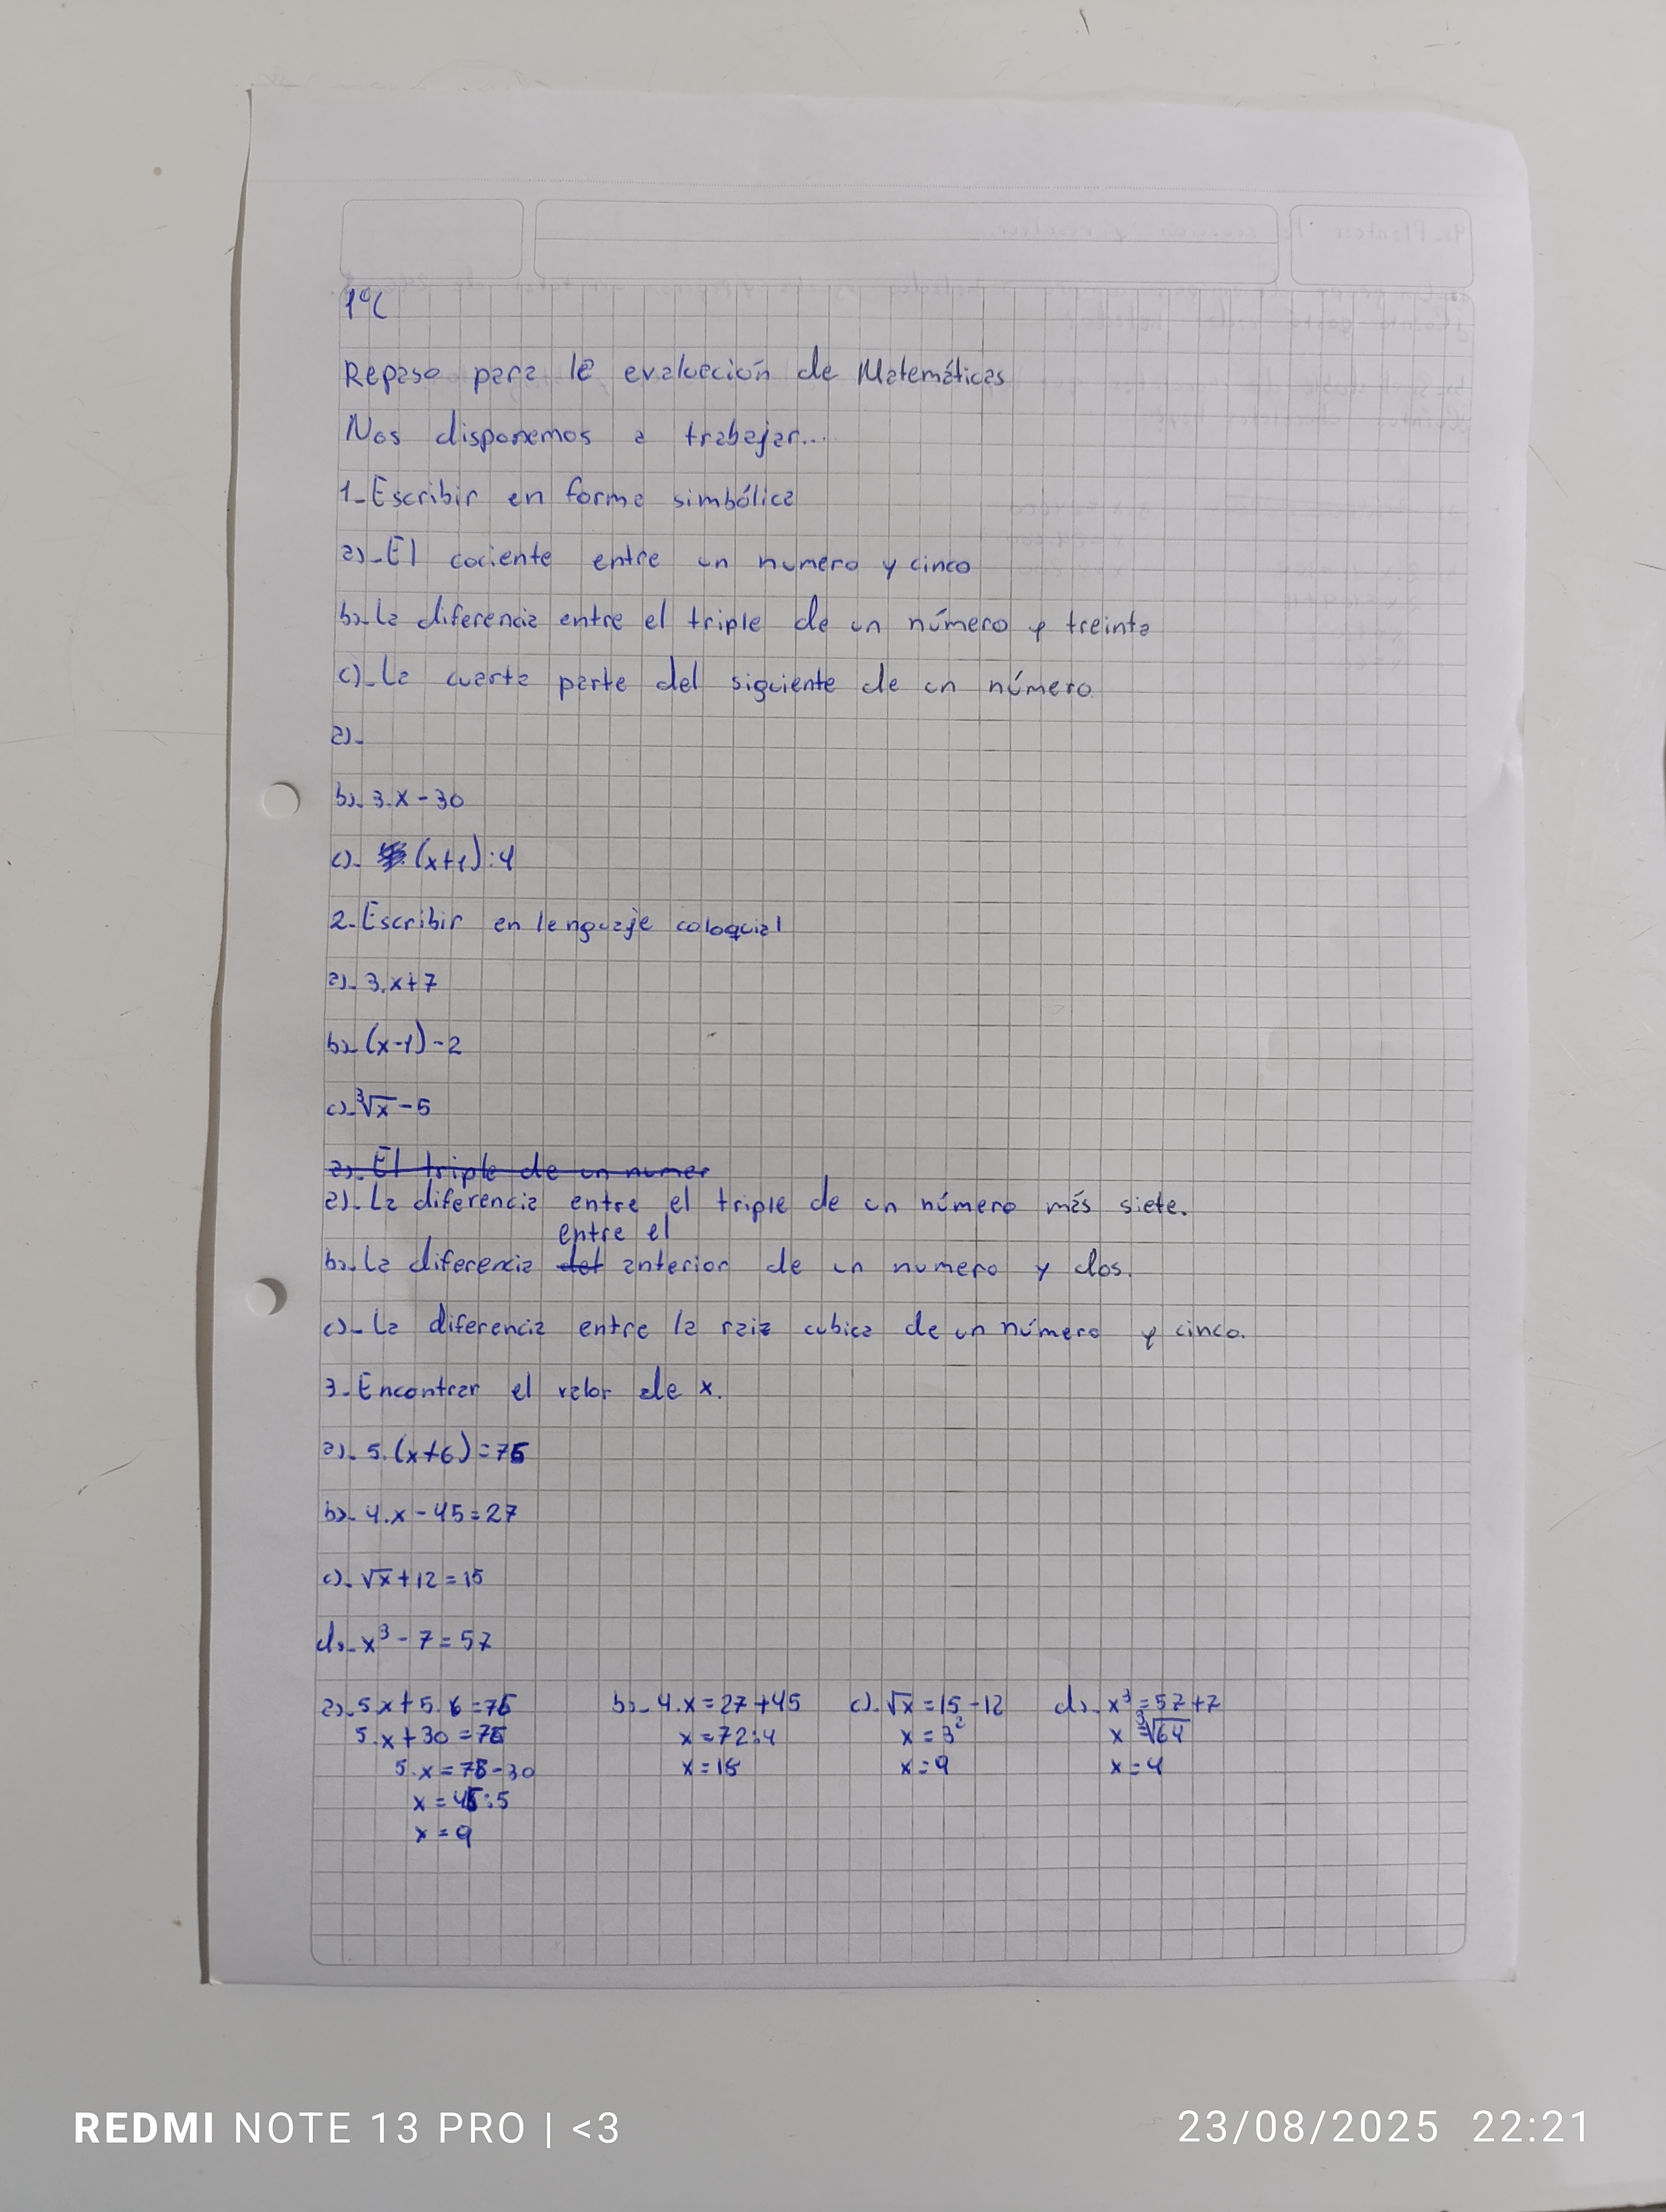 1°C
Repaso para la evaluación de Matemáticas
Nos disponemos a trabajar...
1-Escribir en forma simbólica
a)-El cociente entre un numero y cinco
b)-La diferencia entre el triple de un número y treinta
c)-La cuarta parte del siguiente de un número
a)-
b)- 3.x-30
c)- (x+1):4
2-Escribir en lenguaje coloquial
a)- 3.x+7
b)- (x-1)-2
c)- ³√x-5
a)- El triple de un numer
a)-La diferencia entre el triple de un número más siete.
entre el
b)-La diferencia del anterior de un numero y dos.
c)-La diferencia entre la raiz cubica de un número y cinco.
3-Encontrar el valor de x.
a)- 5.(x+6)=75
b)- 4.x-45=27
c)- √x+12=15
d)- x³-7=57
a)- 5.x+5.6=75 b)- 4.x=27+45 c)- √x=15-12 d)- x³=57+7
5.x+30=75 x=72:4 x=3² x=³√64
5.x=75-30 x=18 x=9 x=4
x=45:5
x=9
REDMI NOTE 13 PRO | <3 23/08/2025 22:21